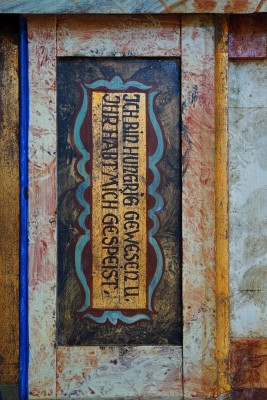 ICH BIN HUNGRIG GEWESEN, U.
IHR HABT MICH GESPEIST.